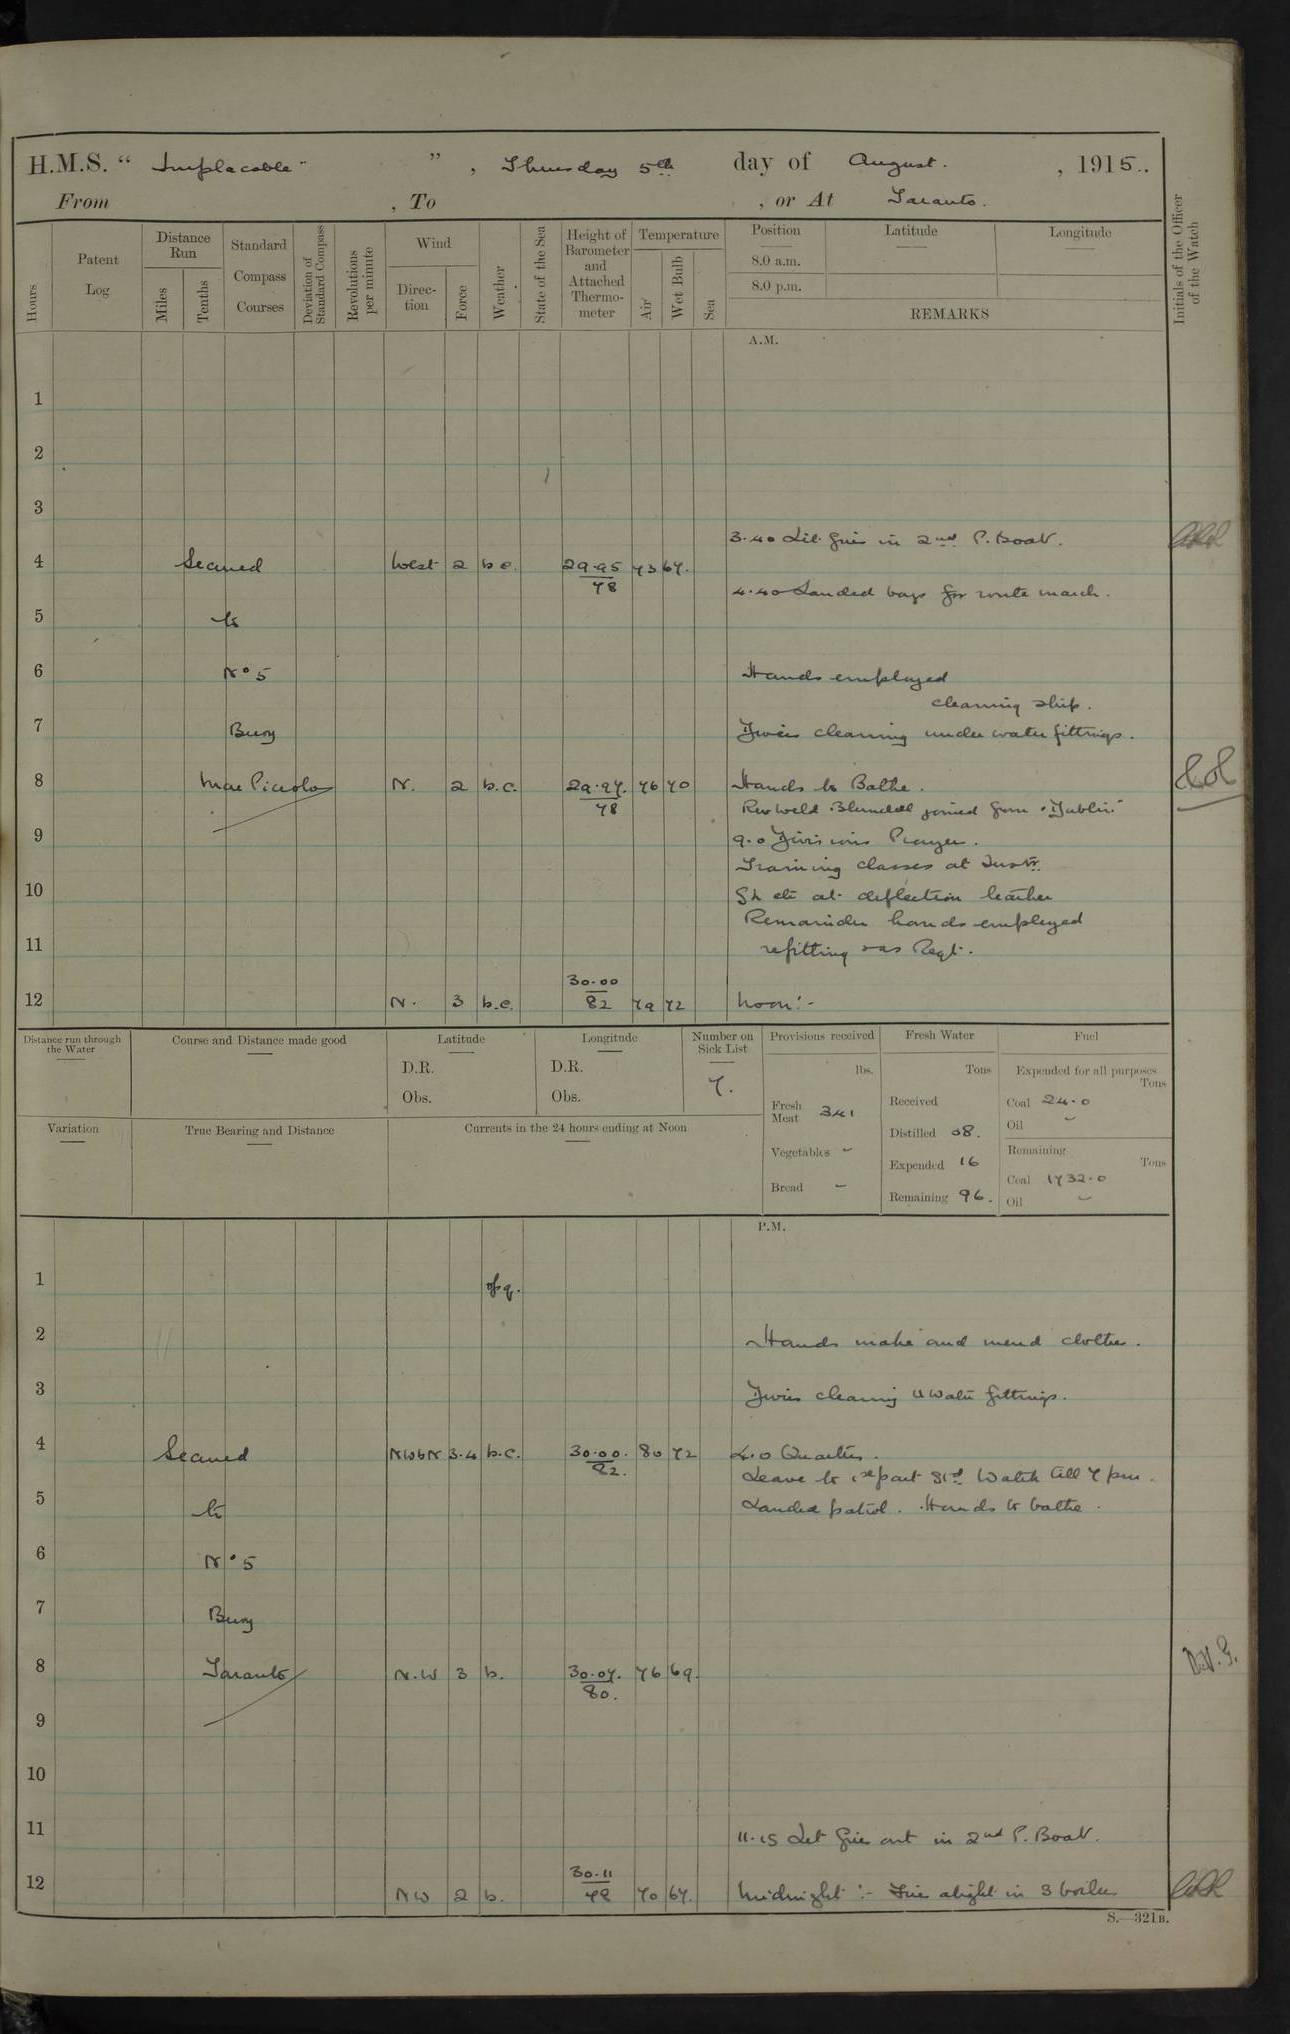 H.M.S. " Implacable " ", Thursday 5th day of August. , 1915..
From , To , or At Taranto.
Hours
Patent Log
Distance Run
Miles
Tenths
Standard Compass Courses
Deviation of Standard Compass
Revolutions per minute
Wind
Direc-tion
Force
Weather
State of the Sea
Height of Barometer and Attached Thermo-meter
Temperature
Air
Wet Bulb
Sea
Position
8.0 a.m.
8.0 p.m.
Latitude
Longitude
REMARKS
Initials of the Officer of the Watch
A.M.
1
2
3
3.40 Lit fires in 2nd P. Boat.
4 Secured West 2 b.c. 29.95 73 67.
78
4.40 Landed bags for route march.
5 to
6 No 5 Hands employed
cleaning ship.
7 Buoy Divers cleaning under water fittings.
8 Mar Piccolo N. 2 b.c. 29.97. 76 70 Hands to Bathe.
78
Rev Weld Blundell joined from "Dublin"
9 9.0 Divisions Prayers.
Training classes at Instr.
10 at deflection teacher
Remainder hands employed
11 refitting as Reqt.
30.00
12 N. 3 b.c. 82 79 72 Noon:-
Distance run through the Water
Course and Distance made good
Latitude
D.R.
Obs.
Longitude
D.R.
Obs.
Number on Sick List
7.
Provisions received
lbs.
Fresh Meat 341
Vegetables -
Bread -
Fresh Water
Tons
Received
Distilled 08.
Expended 16
Remaining 96.
Fuel
Expended for all purposes
Tons
Coal 24.0
Oil -
Remaining
Tons
Coal 1732.0
Oil -
Variation
True Bearing and Distance
Currents in the 24 hours ending at Noon
P.M.
1 q.
2 Hands make and mend clothes.
3 Divers cleaning u water fittings.
4 Secured NWbN 3.4 b.c. 30.00. 80 72 4.0 Quarters.
82.
Leave to 1st part Std Watch till 7 pm.
5 to Landed patrol. Hands to bathe.
6 No 5
7 Buoy
8 Taranto N.W 3 b. 30.07. 76 69.
80.
9
10
11 11.15 Let fires out in 2nd P. Boat.
30.11
12 NW 2 b. 78 70 67. Midnight:- Fires alight in 3 boilers
S.—321B.